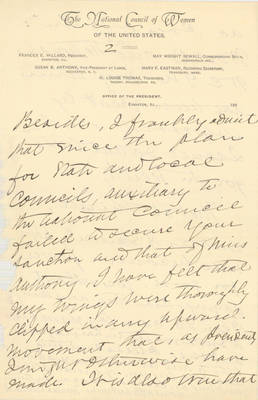 The National Council of Women
OF THE UNITED STATES.
2
FRANCES E. WILLARD, PRESIDENT,
EVANSTON, ILL.
SUSAN B. ANTHONY, VICE-PRESIDENT AT LARGE,
ROCHESTER, N. Y.
MAY WRIGHT SEWALL, CORRESPONDING SEC'Y,
INDIANAPOLIS, IND.
MARY F. EASTMAN, RECORDING SECRETARY,
TEWKSBURY, MASS.
M. LOUISE THOMAS, TREASURER,
TACONY, PHILADELPHIA, PA.
OFFICE OF THE PRESIDENT.
EVANSTON, ILL., 189
Besides, I frankly admit
that since the plan
for State and local
Councils, auxiliary to
the National Council
failed to secure your
sanction and that of Miss
Anthony, I have felt that
my wings were thoroughly
clipped in any upward
movement that, as President
I might otherwise have
made. It is also true that